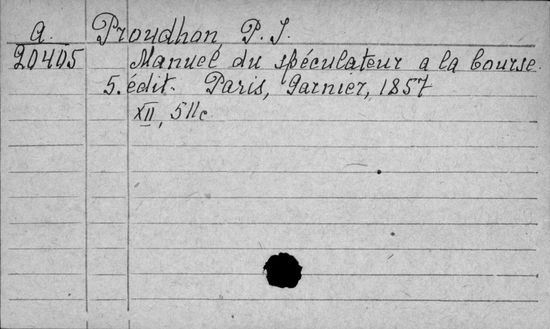 A. Proudhon, P. J.
20405 Manuel du spéculateur a la bourse.
5. édit. Paris, Garnier, 1857
XII, 511c